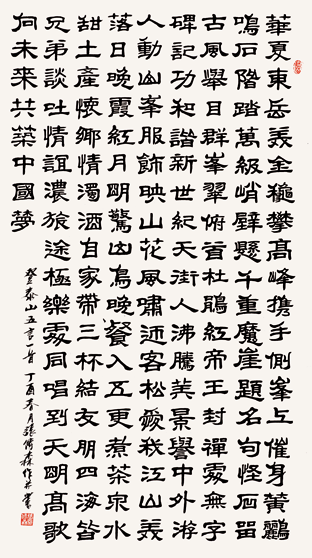 華夏東岳美金穐攀高峰携手側峯上催身黄鸝
鳴石階踏萬級峭壁懸千重魔崖題名句怪石留
古風舉目群峯翠俯首杜鵑紅帝王封禪處無字
碑記功和諧新世紀天街人沸騰美景譽中外游
人動山峯服飾映山花風嘯迎客松愛我江山美
落日晚霞紅月明驚山鳥晚餐入五更煮茶泉水
甜土產懷鄉情濁酒自家帶三杯結友朋四海皆
兄弟談吐情誼濃旅途極樂處同唱到天明高歌
向未來共築中國夢
登泰山五言一首 丁酉春月張森作并書